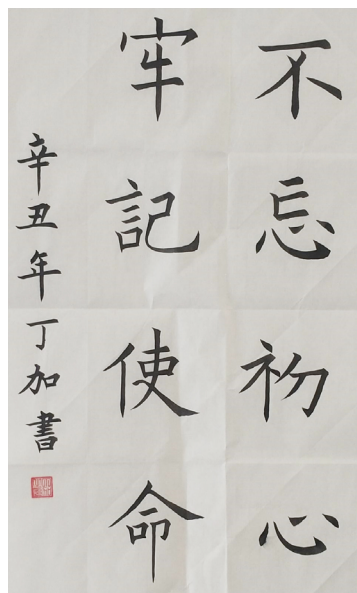 不忘初心
牢記使命
辛丑年丁加書